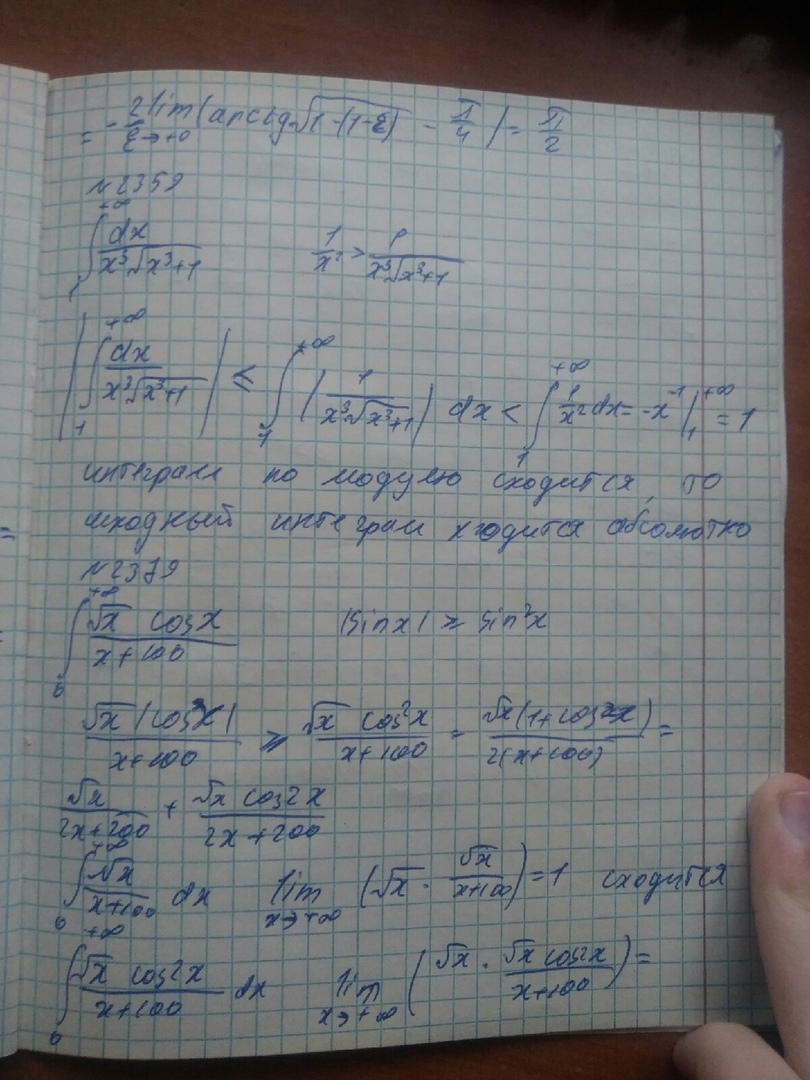 = - 2 lim_{ε→+0} (arctg √(1-(1-ε)) - π/4) = π/2
№2359
∫_1^{+∞} dx / (x ∛(x³+1))    1/x² > 1 / (x ∛(x³+1))
|∫_1^{+∞} dx / (x ∛(x³+1))| ≤ ∫_1^{+∞} (1 / (x ∛(x³+1))) dx < ∫_1^{+∞} 1/x² dx = -x^{-1} |_1^{+∞} = 1
интеграл по модулю сходится, то
исходный интеграл сходится абсолютно
№2379
∫_0^{+∞} √x cosx / (x+100)    |sinx| ≥ sin²x
√x |cosx| / (x+100) ≥ √x cos²x / (x+100) = √x (1+cos2x) / (2(x+100)) =
√x / (2x+200) + √x cos2x / (2x+200)
∫_0^{+∞} √x / (x+100) dx    lim_{x→+∞} (√x · √x / (x+100)) = 1 сходится
∫_0^{+∞} √x cos2x / (x+100) dx    lim_{x→+∞} (√x · √x cos2x / (x+100)) =